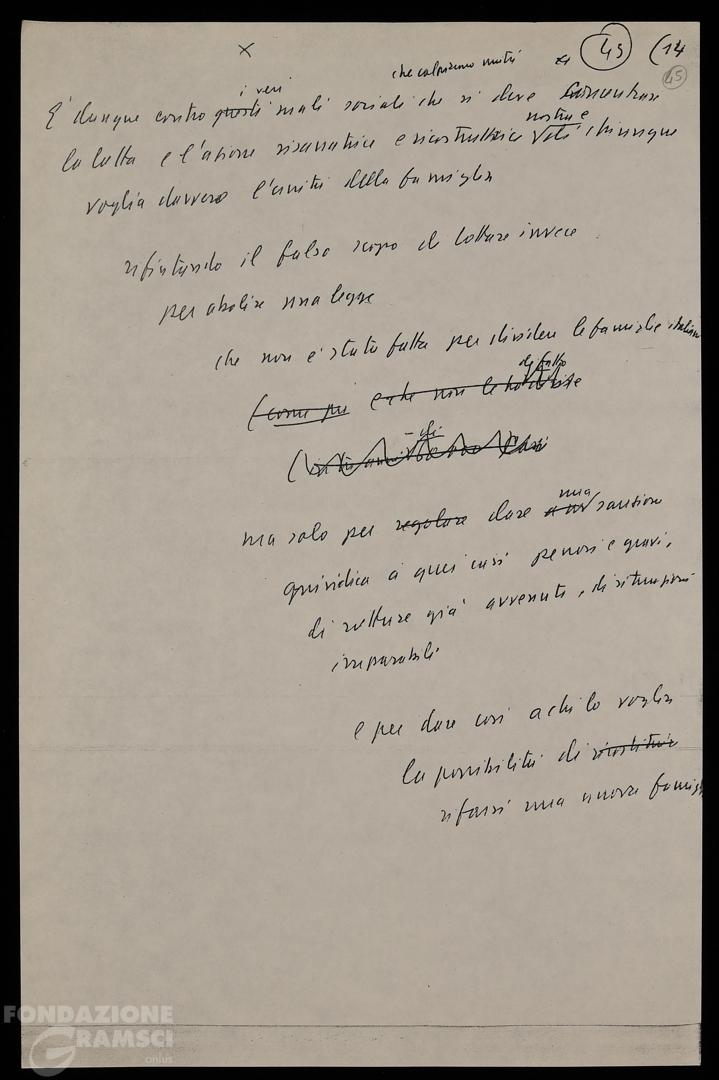 ×
45 (14
45
i veri
che colpiscono
E' dunque contro questi mali sociali che si deve concentrare
nostra e
la lotta e l'azione risanatrice e ricostruttrice di chiunque
voglia davvero l'unità della famiglia
rifiutando il falso scopo di lottare invece
per abolire una legge
che non è stata fatta per dividere le famiglie italiane
di fatto
(come pu e che non le ha divise
ma solo per regolare dare una sanzione
giuridica a quei casi penosi e gravi,
di rotture già avvenute, di situazioni
irreparabili
e per dare così a chi lo voglia
la possibilità di ricostituir
rifarsi una nuova famigl
FONDAZIONE
GRAMSCI
onlus